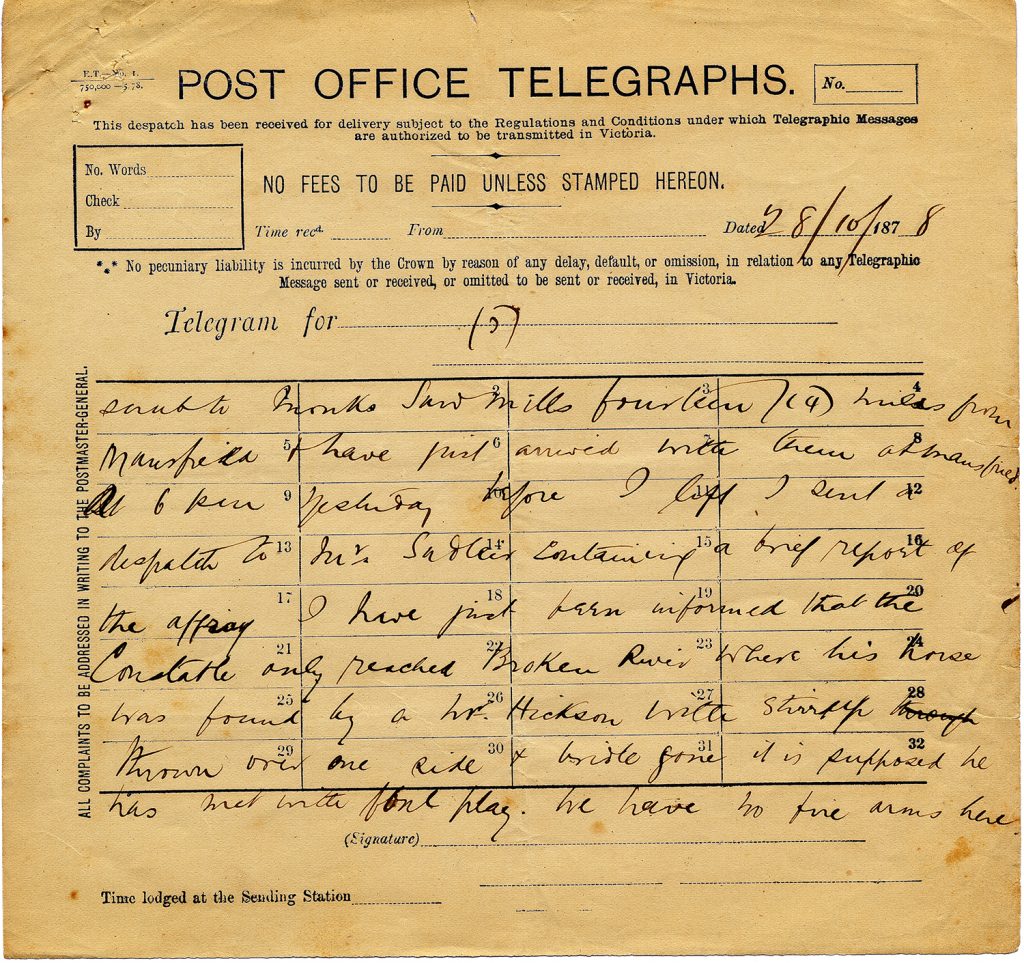 E.T.—No. 1.
750,000—5.78.
POST OFFICE TELEGRAPHS.
No.
This despatch has been received for delivery subject to the Regulations and Conditions under which Telegraphic Messages
are authorized to be transmitted in Victoria.
No. Words
Check
By
NO FEES TO BE PAID UNLESS STAMPED HEREON.
Time recd. From Dated 28/10/1878
*** No pecuniary liability is incurred by the Crown by reason of any delay, default, or omission, in relation to any Telegraphic
Message sent or received, or omitted to be sent or received, in Victoria.
Telegram for (5)
ALL COMPLAINTS TO BE ADDRESSED IN WRITING TO THE POSTMASTER-GENERAL.
scrub to Monks Saw Mills fourteen (14) miles from
Mansfield & have just arrived with them at Mansfield.
At 6 pm yesterday before I left I sent a
despatch to Mr. Sadleir containing a brief report of
the affray I have just been informed that the
Constable only reached Broken River where his horse
was found by a Mr. Hickson with stirrup through
thrown over one side & bridle gone it is supposed he
has met with foul play. We have no fire arms here.
1 2 3 4
5 6 7 8
9 10 11 12
13 14 15 16
17 18 19 20
21 22 23 24
25 26 27 28
29 30 31 32
(Signature)
Time lodged at the Sending Station